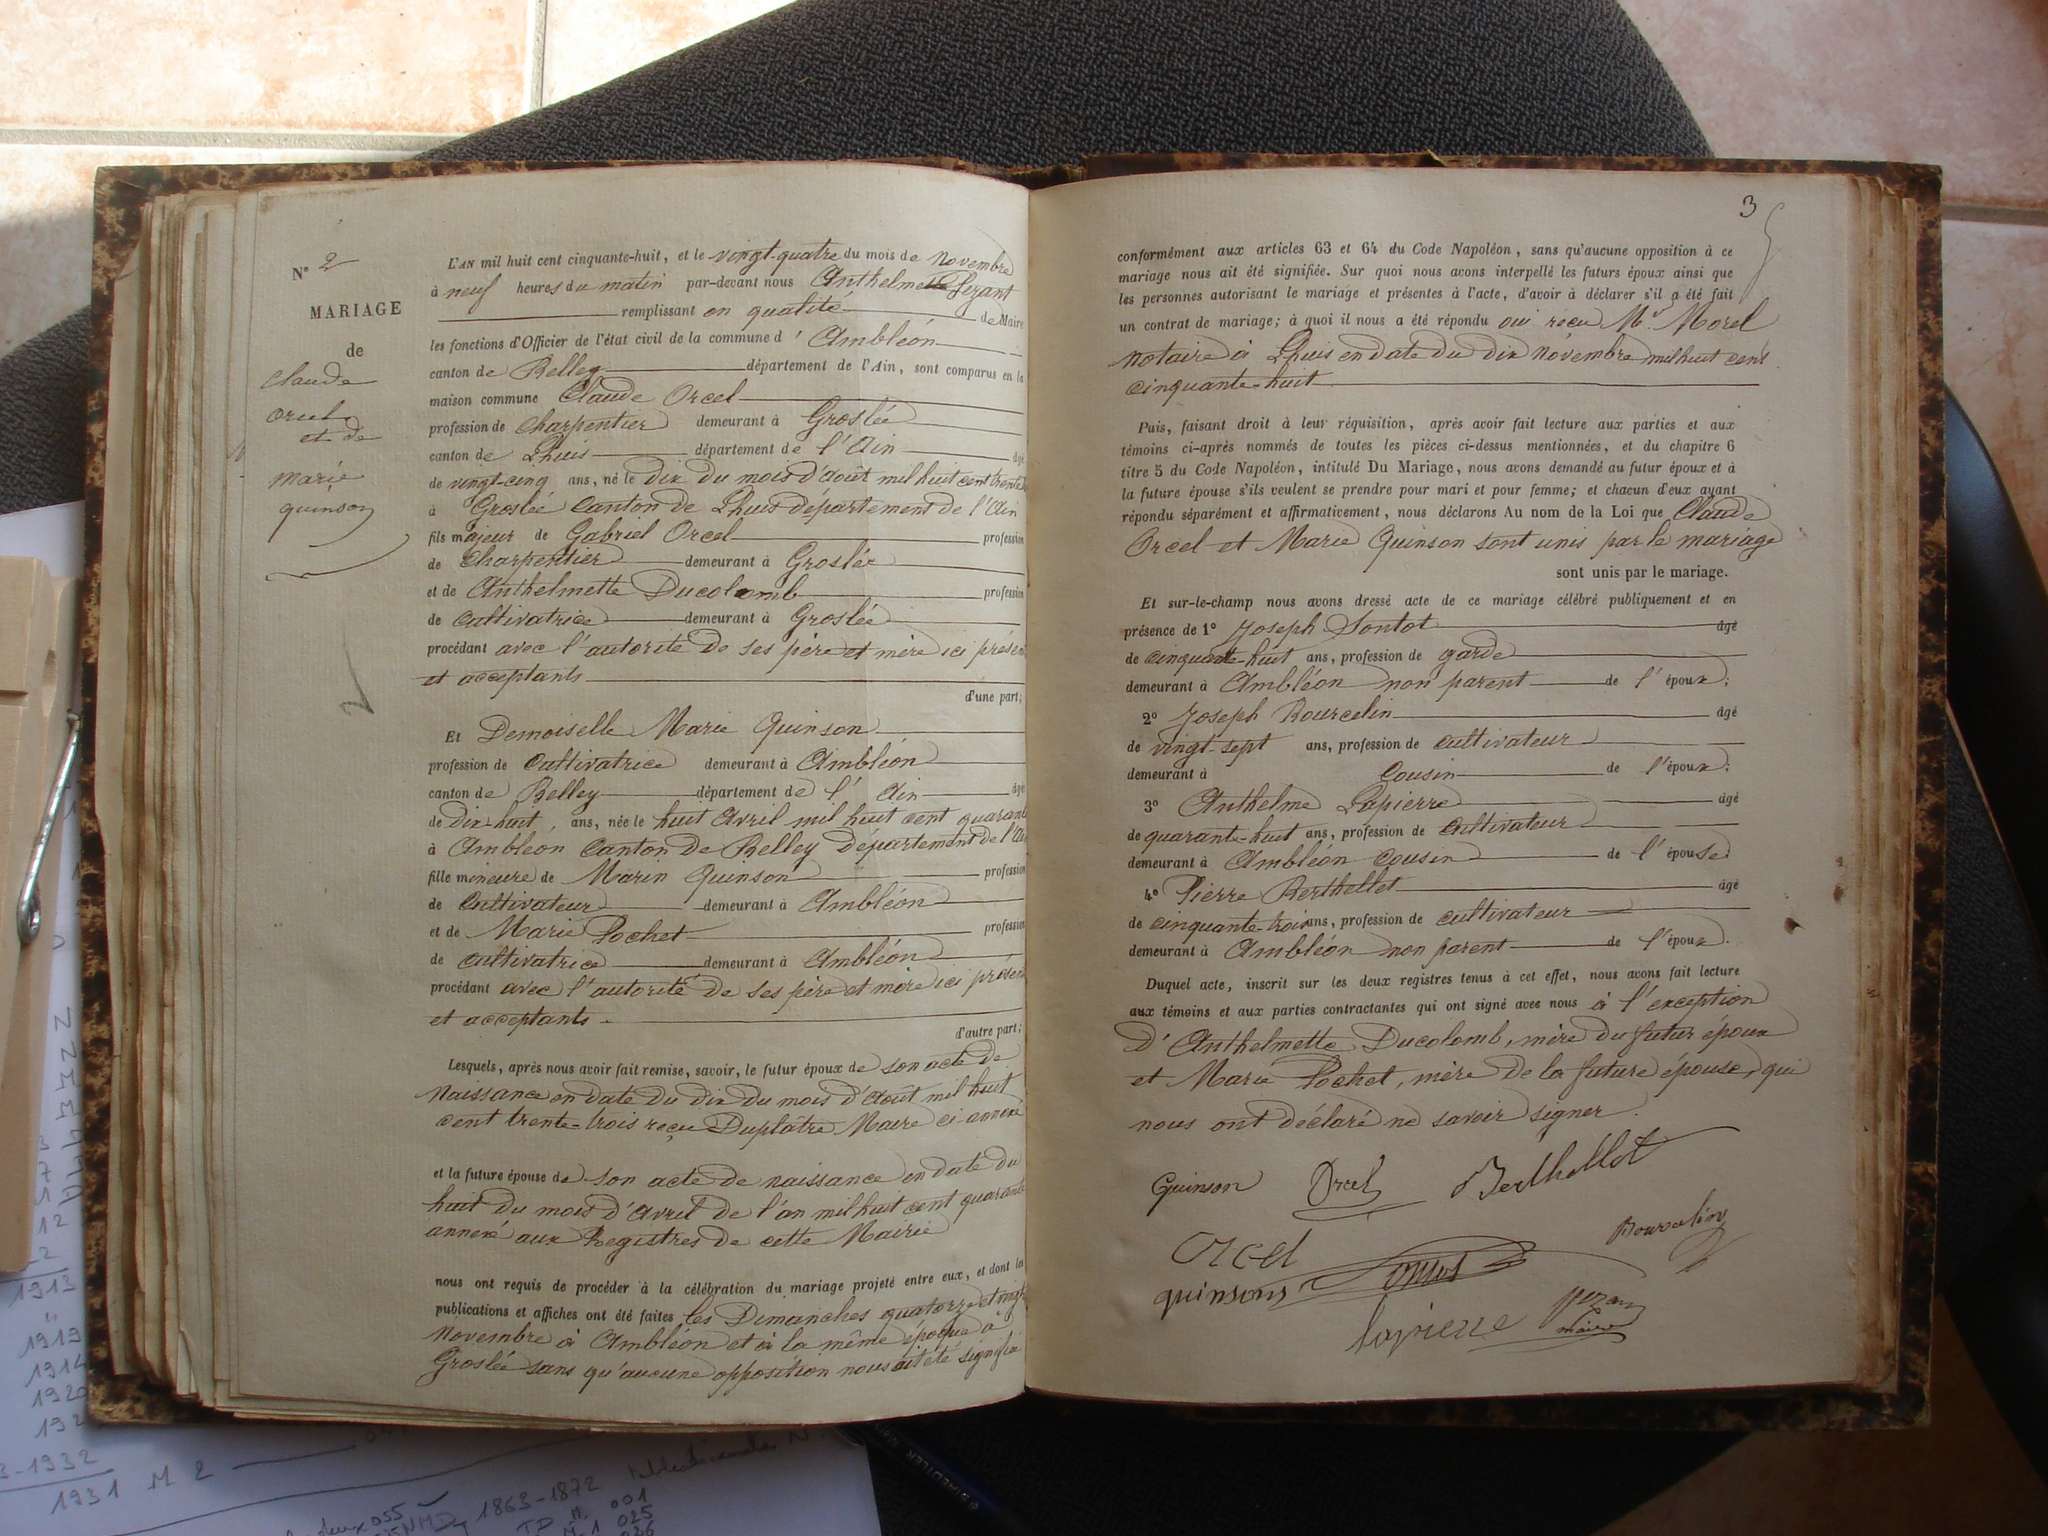 N° 2
MARIAGE
de
Claude
Orcel
et de
Marie
quinson
L'AN mil huit cent cinquante-huit, et le vingt-quatre du mois de Novembre
à neuf heures du matin par-devant nous Anthelme
remplissant en qualité de Maire
les fonctions d'Officier de l'état civil de la commune d' Ambléon
canton de Belley département de l'Ain, sont comparus en la
maison commune Claude Orcel
profession de Charpentier demeurant à Groslée
canton de Lhuis département de l'Ain âgé
de vingt-cinq ans, né le dix du mois d'août mil huit cent trente
à Groslée Canton de Lhuis département de l'Ain
fils majeur de Gabriel Orcel profession
de Charpentier demeurant à Groslée
et de Anthelmette Ducolomb profession
de cultivatrice demeurant à Groslée
procédant avec l'autorité de ses père et mère ici présen
et acceptants
d'une part;
Et Demoiselle Marie Quinson
profession de Cultivatrice demeurant à Ambléon
canton de Belley département de l' Ain âgé
de Dix-huit ans, née le huit Avril mil huit cent quarante
à Ambléon Canton de Belley Département de l'Ain
fille mineure de Marin Quinson profession
de Cultivateur demeurant à Ambléon
et de Marie Pochet profession
de Cultivatrice demeurant à Ambléon
procédant avec l'autorité de ses père et mère ici présen
et acceptants.
d'autre part;
Lesquels, après nous avoir fait remise, savoir, le futur époux de son acte de
Naissance en date du dix du mois d'Août mil huit
cent trente-trois reçu Duplâtre Maire ci-annexé
et la future épouse de son acte de naissance en date du
huit du mois d'Avril de l'an mil huit cent quarante
annexé aux Registres de cette Mairie
nous ont requis de procéder à la célébration du mariage projeté entre eux, et dont les
publications et affiches ont été faites les Dimanches quatorze et vingt
Novembre à Ambléon et à la même époque à
Groslée sans qu'aucune opposition nous ait été signifié
3
conformément aux articles 63 et 64 du Code Napoléon, sans qu'aucune opposition à ce
mariage nous ait été signifiée. Sur quoi nous avons interpellé les futurs époux ainsi que
les personnes autorisant le mariage et présentes à l'acte, d'avoir à déclarer s'il a été fait
un contrat de mariage; à quoi il nous a été répondu oui reçu Mr Morel
notaire à Lhuis en date du dix Novembre mil huit cent
cinquante-huit
Puis, faisant droit à leur réquisition, après avoir fait lecture aux parties et aux
témoins ci-après nommés de toutes les pièces ci-dessus mentionnées, et du chapitre 6
titre 5 du Code Napoléon, intitulé Du Mariage, nous avons demandé au futur époux et à
la future épouse s'ils veulent se prendre pour mari et pour femme; et chacun d'eux ayant
répondu séparément et affirmativement, nous déclarons Au nom de la Loi que Claude
Orcel et Marie Quinson sont unis par le mariage
sont unis par le mariage.
Et sur-le-champ nous avons dressé acte de ce mariage célébré publiquement et en
présence de 1° Joseph Sontot âgé
de cinquante-huit ans, profession de garde
demeurant à Ambléon non parent de l'époux;
2° Joseph Bourcelin âgé
de vingt-sept ans, profession de cultivateur
demeurant à Cousin de l'époux;
3° Anthelme Lapierre âgé
de quarante-huit ans, profession de Cultivateur
demeurant à Ambléon cousin de l'épouse;
4° Pierre Berthellet âgé
de cinquante-trois ans, profession de cultivateur
demeurant à Ambléon non parent de l'époux.
Duquel acte, inscrit sur les deux registres tenus à cet effet, nous avons fait lecture
aux témoins et aux parties contractantes qui ont signé avec nous à l'exception
d'Anthelmette Ducolomb, mère du futur époux
et Marie Pochet, mère de la future épouse, qui
nous ont déclaré ne savoir signer.
Quinson Orcel Berthellet
Orcel Bourcelin
quinsons
lapierre maire
1913
1919
1914
1920
1931 M 2
1863-1872
001
025
026